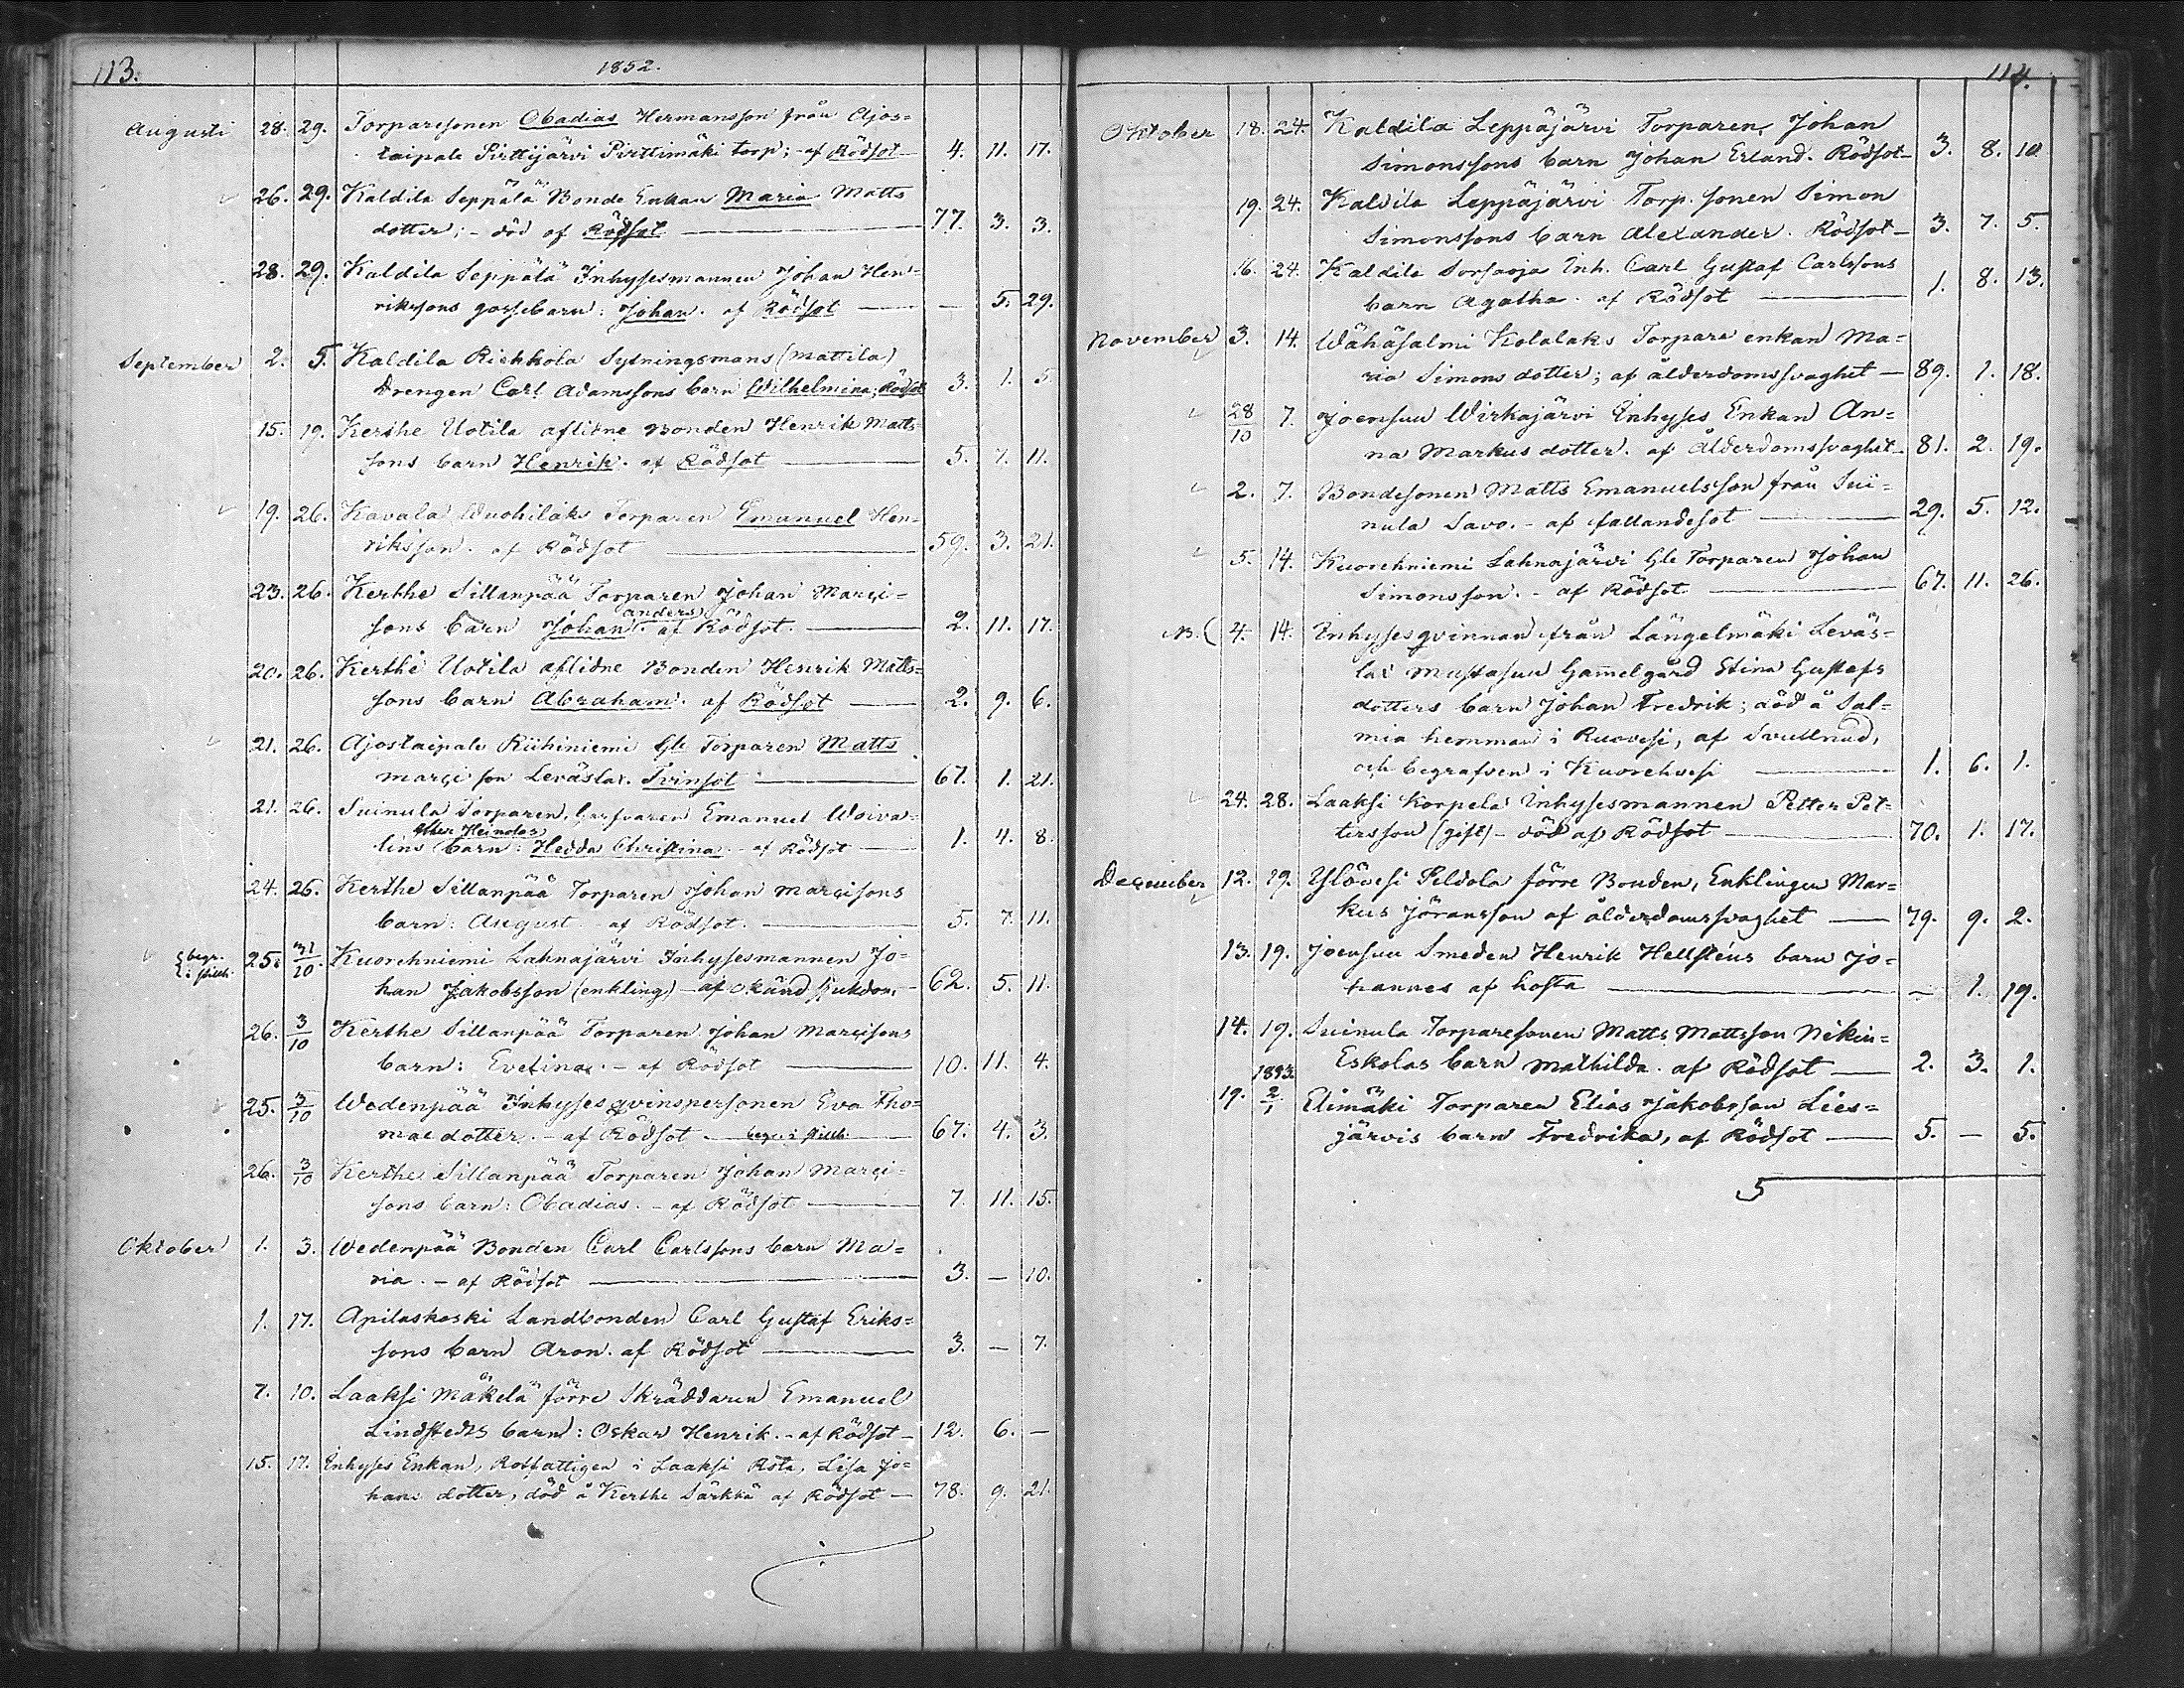 113. 1852.
Augusti 28. 29. Torparesonen Obadias Hermansson från Ajos=
taipale Pirttijärvi Pirttimäki torp; - af Rödsot 4. 11. 17.
26. 29. Kaldila Seppälä Bonde Enkan Maria Matts
dotter; - död af Rödsot 77. 3. 3.
28. 29. Kaldila Seppälä Inhysesmannen Johan Hen=
rikssons gossebarn: Johan. af Rödsot — 5. 29.
September 2. 5. Kaldila Riekkola Sytningsmans (Mattila)
Drengen Carl Adamssons barn Wilhelmina; Rödsot 3. 1. 5.
15. 19. Kerthe Uotila aflidne Bonden Henrik Matts
sons barn Henrik. af Rödsot 5. 7. 11.
19. 26. Kavala Wuohilaks Torparen Emanuel Hen=
riksson. af Rödsot 59. 3. 21.
23. 26. Kerthe Sillanpää Torparen Johan Marci=
anders
sons barn Johan. af Rödsot. 2. 11. 17.
20. 26. Kerthe Uotila aflidne Bonden Henrik Matts=
sons barn Abraham. af Rödsot 2. 9. 6.
21. 26. Ajostaipale Riihiniemi Gle Torparen Matts
Marci son Leväslax. Tvinsot 67. 1. 21.
21. 26. Suinula Torparen, Garfvaren Emanuel Woiva=
ether Heinolas
lins barn: Hedda Christina. - af Rödsot 1. 4. 8.
24. 26. Kerthe Sillanpää Torparen Johan Marcisons
barn: August. af Rödsot. 5. 7. 11.
begr. i stillh. 25. 31/10. Kuorehniemi Lahnajärvi Inhysesmannen Jo=
han Jakobsson (enkling) - af okänd sjukdom. 62. 5. 11.
26. 3/10 Kerthe Sillanpää Torparen Johan Marcisons
barn: Evelina. - af Rödsot 10. 11. 4.
25. 3/10 Wedenpää Inhyses qvinspersonen Eva Tho=
mae dotter. - af Rödsot. begr. i stillh. 67. 4. 3.
26. 3/10 Kerthe Sillanpää Torparen Johan Marci=
sons barn: Obadias. - af Rödsot 7. 11. 15.
Oktober 1. 3. Wedenpää Bonden Carl Carlssons barn Ma=
ria. - af Rödsot 3. — 10.
1. 17. Apilaskoski Landbonden Carl Gustaf Eriks=
sons barn Aron. af Rödsot 3. — 7.
7. 10. Laaksi Mäkelä förre Skräddaren Emanuel
Lindstedts barn: Oskar Henrik. - af Rödsot 12. 6. —
15. 17. Inhyses Enkan, Rotfattigen i Laaksi Rote, Lisa Jo=
hans dotter, död å Kerthe Särkkä af Rödsot 78. 9. 21.
114.
Oktober 18. 24. Kaldila Leppäjärvi Torparen Johan
Simonssons barn Johan Erland. Rödsot 3. 8. 10.
19. 24. Kaldila Leppäjärvi Torp. sonen Simon
Simonssons barn Alexander. Rödsot 3. 7. 5.
16. 24. Kaldila Sorsaoja Inh. Carl Gustaf Carlssons
barn Agatha. af Rödsot 1. 8. 13.
November 3. 14. Wähäsalmi Kolalaks Torpare enkan Ma=
ria Simons dotter; af ålderdomssvaghet 89. 1. 18.
28/10 7. Joensuu Wirkajärvi Inhyses Enkan An=
na Markus dotter. af Ålderdomssvaghet 81. 2. 19.
2. 7. Bondesonen Matts Emanuelsson från Sui=
nula Savo. - af fallandesot 29. 5. 12.
5. 14. Kuorehniemi Lahnajärvi Gle Torparen Johan
Simonsson. - af Rödsot 67. 11. 26.
NB. ( 4. 14. Inhyses qvinnan från Längelmäki Leväs=
lax Mustasuu Gammelgård Stina Gustafs
dotters barn Johan Fredrik; död å Sal=
mia hemman i Ruovesi, af Svullnad,
och begrafven i Kuorehvesi 1. 6. 1.
24. 28. Laaksi Korpela Inhysesmannen Petter Pet=
tersson (gift) - död af Rödsot 70. 1. 17.
December 12. 19. Ylövesi Peldola förre Bonden, Enklingen Mar=
kus Jöransson af ålderdomssvaghet 79. 9. 2.
13. 19. Joensuu Smeden Henrik Hellsténs barn Jo=
hannes af hosta — 1. 19.
14. 19. Suinula Torparesonen Matts Mattsson Nikin=
Eskolas barn Mathilda. af Rödsot 2. 3. 1.
1853.
19. 2/1 Elimäki Torparen Elias Jakobsson Lies=
järvis barn Fredrika, af Rödsot 5. — 5.